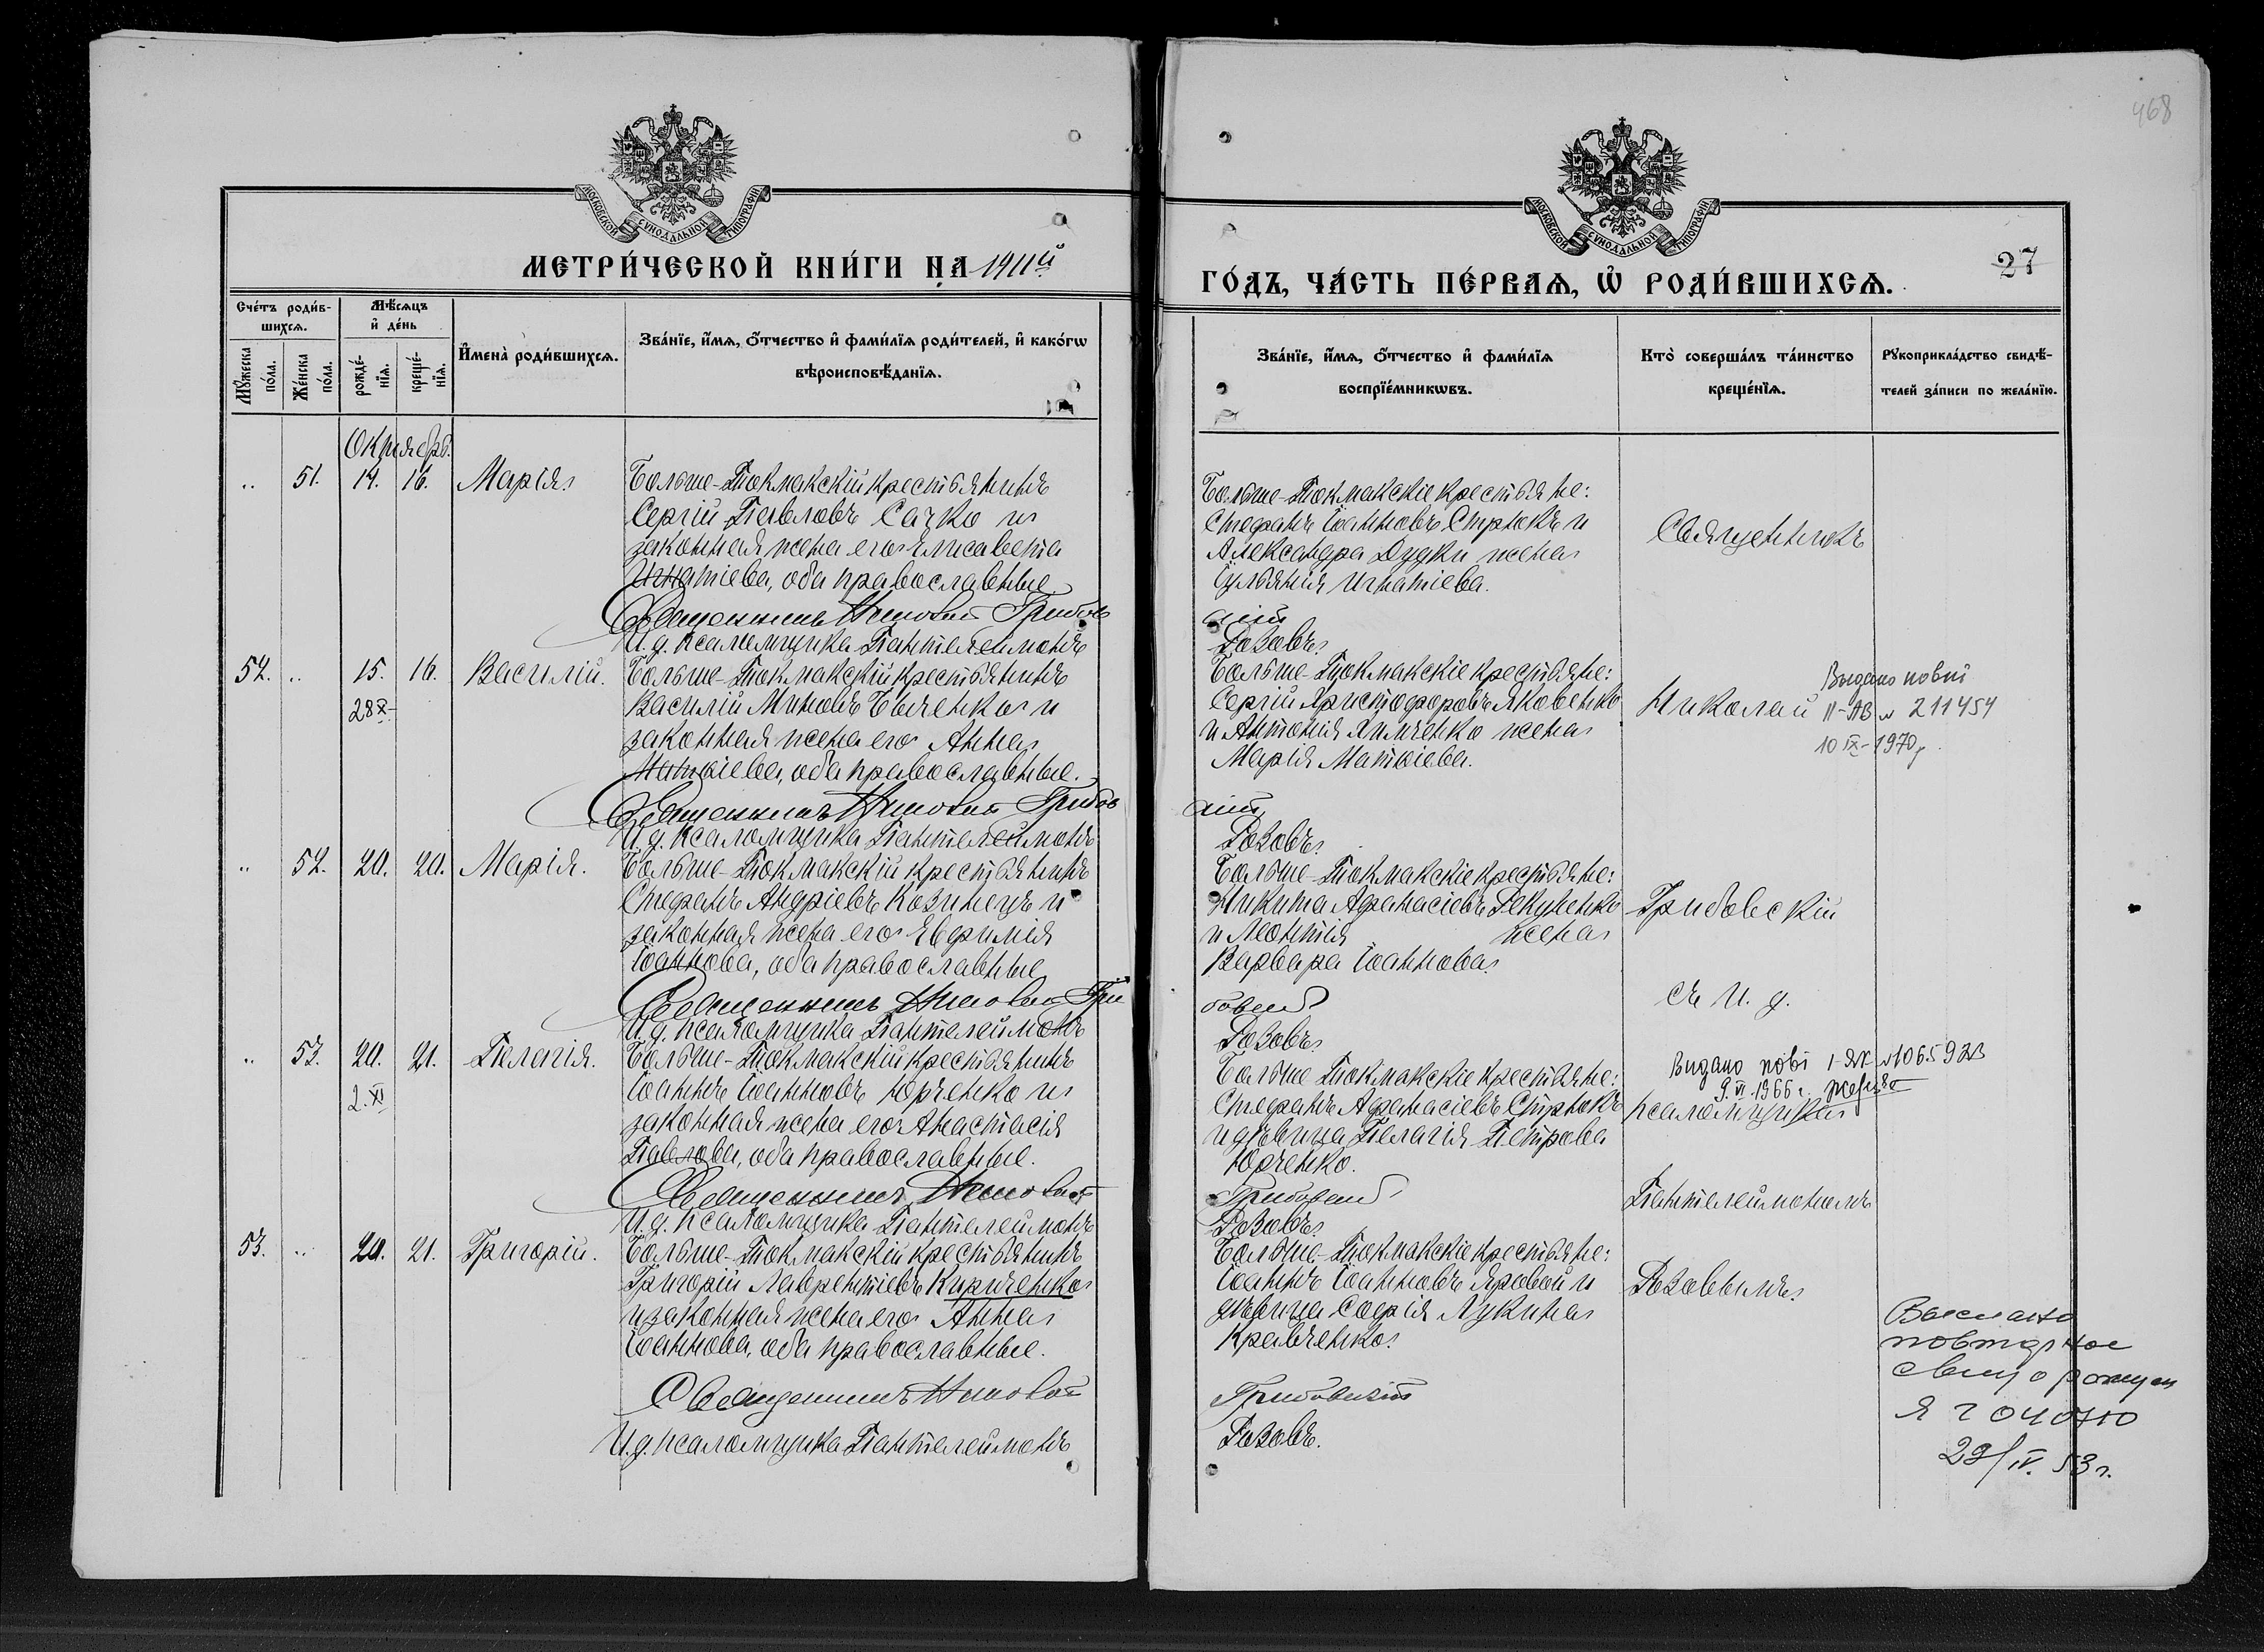 468
МОСКОВСКОЙ СѴНОДАЛЬНОЙ ТИПОГРАФИИ
МОСКОВСКОЙ СѴНОДАЛЬНОЙ ТИПОГРАФИИ
МЕТРИ́ЧЕСКОЙ КНИ́ГИ НА 1911й
ГО́ДЪ, ЧА́СТЬ ПЕ́РВАѦ, Ѡ҆ РОДИ́ВШИХСѦ.
27
Сче́тъ роди́в-
шихсѧ.
Мѣ́сѧцъ
и҆ де́нь
Мꙋ́жеска
по́ла.
Же́нска
по́ла.
рожде́-
нїѧ.
креще́-
нїѧ.
И҆мена̀ роди́вшихсѧ.
Зва́нїе, и҆́мѧ, ѻ҆́тчество и҆ фами́лїѧ роди́телей, и҆ како́гѡ
вѣроисповѣ́данїѧ.
Зва́нїе, и҆́мѧ, ѻ҆́тчество и҆ фами́лїѧ
воспрїе́мникѡвъ.
Кто̀ соверша́лъ та́инство
креще́нїѧ.
Рꙋкоприкла́дство свидѣ́-
телей за́писи по жела́нїю.
Октябрь.
„ 51. 14. 16. Марія
Больше-Токмакскій крестьянинъ
Сергій Павловъ Сачко и
законная жена его Елисавета
Игнатіева, оба православные.
Священникъ Николай Грибов
И.д. псаломщика Пантелеимонъ
Больше-Токмакскіе крестьяне:
Стефанъ Іоанновъ Стрюкъ и
Александра Дудки жена
Іульянія Игнатіева.
скій
Розовъ.
Священникъ
52. „ 15. 16. Василій.
28 X
Больше-Токмакскій крестьянинъ
Василій Миновъ Быченко и
законная жена его Анна
Матѳіева, оба православные.
Священникъ Николай Грибов
И.д. псаломщика Пантелеймонъ
Больше-Токмакскіе крестьяне:
Сергій Христофоровъ Яковенко
и Антонія Химченко жена
Марія Матѳіева.
скій
Розовъ.
Николай
Выдано повт
II-АВ № 211454
10 IX-1970г.
„ 52. 20. 20. Марія.
Больше-Токмакскій крестьянинъ
Стефанъ Андріевъ Козинецъ и
законная жена его Евфимія
Іоаннова, оба православные
Священникъ Николай Гри
И.д. псаломщика Пантелеймонъ
Больше-Токмакскіе крестьяне:
Никита Афанасіевъ Текученко
и Леонтія жена
Варвара Іоаннова.
бовскій
Розовъ.
Грибовскій
съ И. д.
„ 53. 20. 21. Пелагія.
2. XI
Больше-Токмакскій крестьянинъ
Іоаннъ Іоанновъ Юрченко и
законная жена его Анастасія
Павлова, оба православные.
Священникъ Николай
И.д. псаломщика Пантелеймонъ
Больше-Токмакскіе крестьяне:
Стефанъ Афанасіевъ Стрюкъ
и дѣвица Пелагія Петрова
Юрченко.
Грибовскій
Розовъ.
Видано повт
9.VI.1966 г.
псаломщика
Пантелеймономъ
53. „ 20. 21. Григорій.
Больше-Токмакскій крестьянинъ
Григорій Лаврентіевъ Кириченко
и законная жена его Анна
Іоаннова, оба православные.
Священникъ Николай
И.д. псаломщика Пантелеймонъ
Больше-Токмакскіе крестьяне:
Іоаннъ Іоанновъ Яровой и
дѣвица Софія Лукина
Кравченко.
Грибовскій
Розовъ.
Розовымъ.
Выслано
повторное
свид о рожден
29/IV. 53 г.